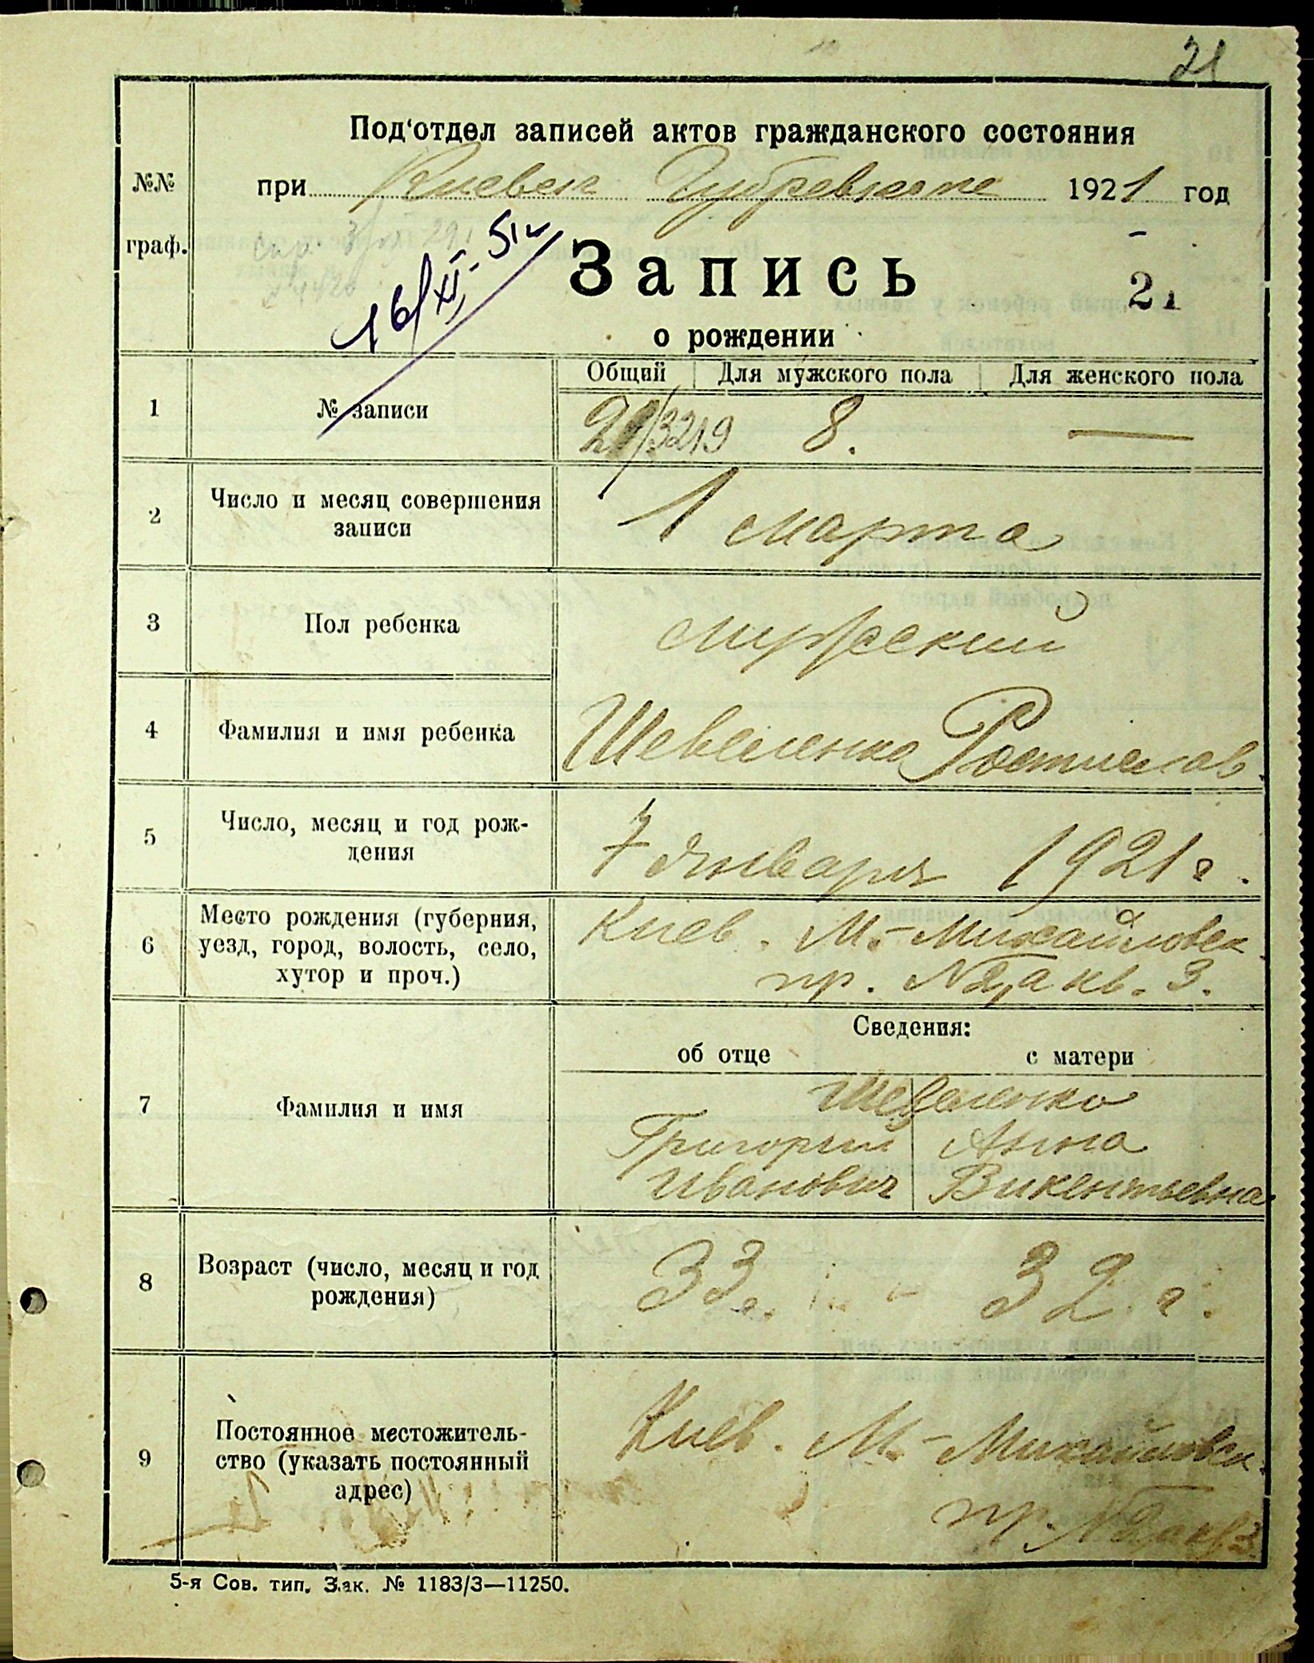 21
Под'отдел записей актов гражданского состояния
№№ граф.
при Киевск Губревкоме 1921 год
16/XI-51г
Запись
21
о рождении
Общий Для мужского пола Для женского пола
1 № записи 21/3219 8. —
2 Число и месяц совершения
записи
1 марта
3 Пол ребенка мужеский
4 Фамилия и имя ребенка Шевеленко Ростислав.
5 Число, месяц и год рож-
дения
7 января 1921 г.
6 Место рождения (губерния,
уезд, город, волость, село,
хутор и проч.)
Киев. М.-Михайловск.
пр. № 2а кв. 3.
Сведения:
об отце с матери
7 Фамилия и имя
Шевеленко
Григорий Анна
Иванович Викентьевна
8 Возраст (число, месяц и год
рождения)
33 г. 32 г.
9 Постоянное местожитель-
ство (указать постоянный
адрес)
Киев. М.-Михайловск.
пр. № 2а кв 3.
5-я Сов. тип. Зак. № 1183/3—11250.